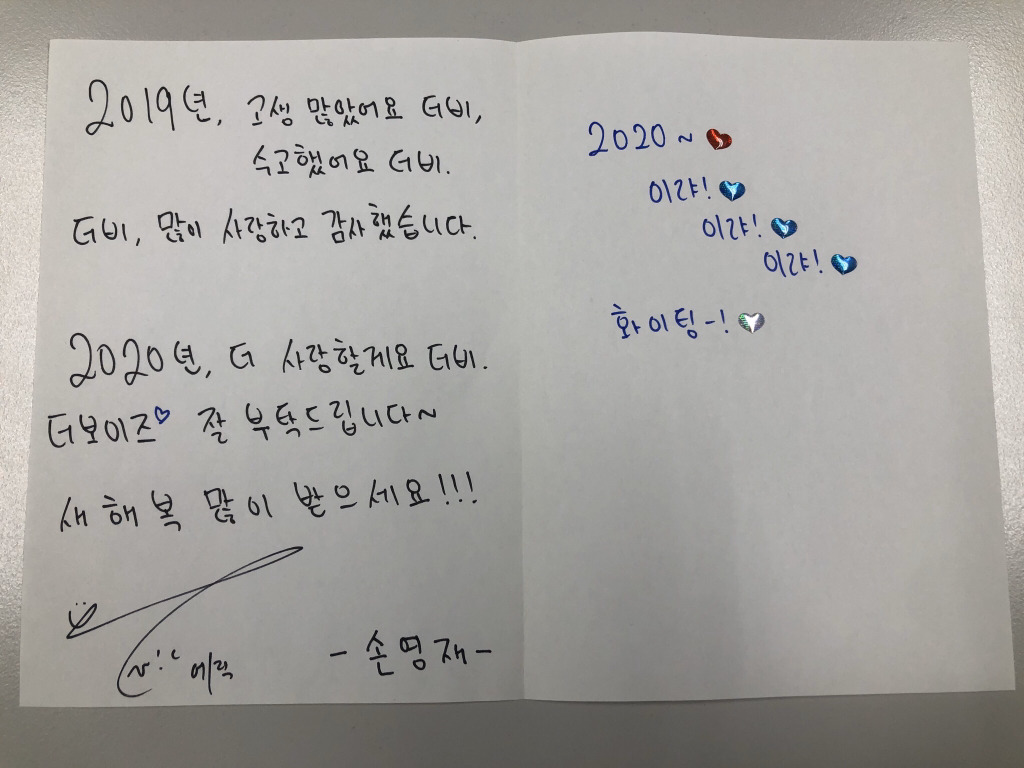 2019년, 고생 많았어요 더비,
수고했어요 더비.
더비, 많이 사랑하고 감사했습니다.
2020년, 더 사랑할게요 더비.
더보이즈♡ 잘 부탁드립니다~
새해복 많이 받으세요!!!
에릭
- 손영재 -
2020~
이랴!
이랴!
이랴!
화이팅-!